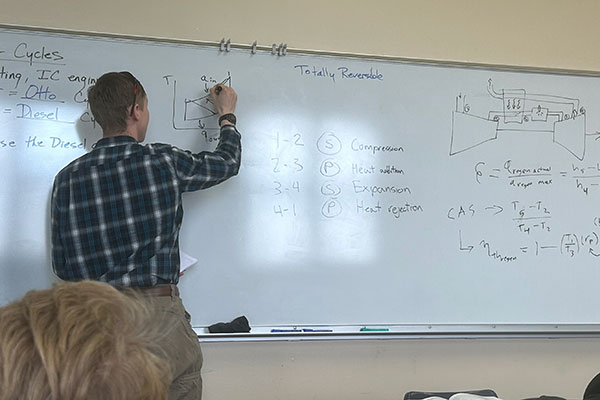 Cycles
ting, IC engin
= Otto Cy
= Diesel
se the Diesel
T
q in
q out
Totally Reversible
1-2 (S) Compression
2-3 (P) Heat addition
3-4 (S) Expansion
4-1 (P) Heat rejection
ε = q regen actual / q regen max = h5 - h / h4 -
CAS → T5 - T2 / T4 - T2
↳ η th regen = 1 - (T1/T3)(rp)